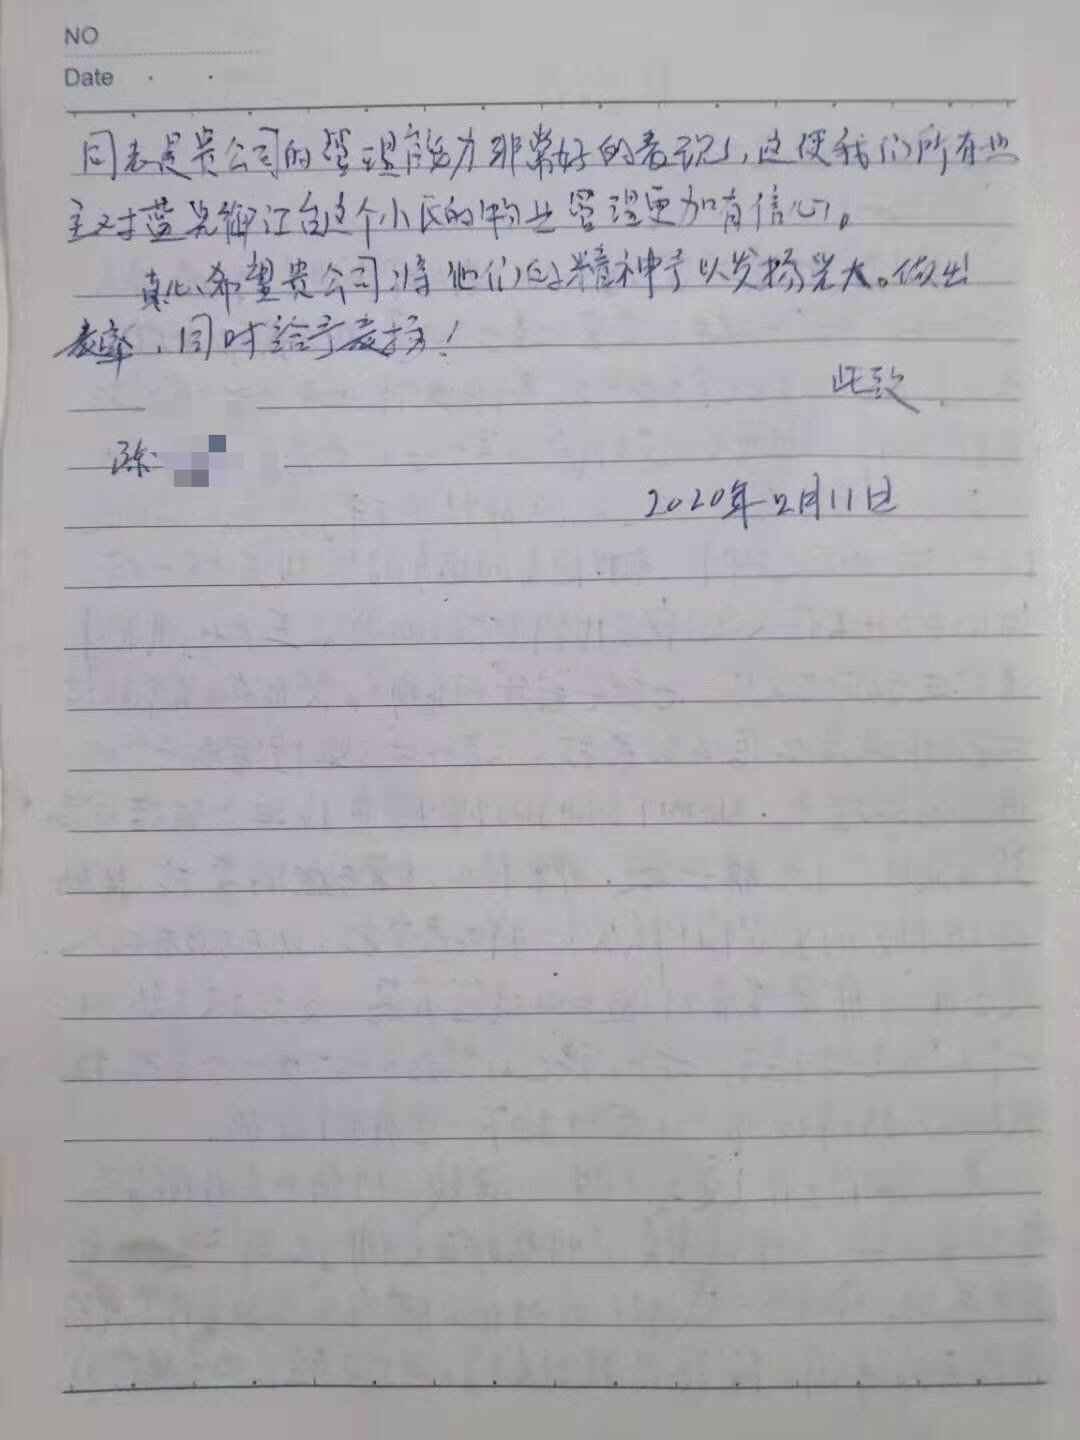 NO
Date
同表是贵公司的管理能力非常好的表现,这使我们所有业
主对蓝光御江台这个小区的物业管理更加有信心。
真心希望贵公司将他们的精神予以发扬光大。做出
表率,同时给予表扬!
此致
陈
2020年2月11日